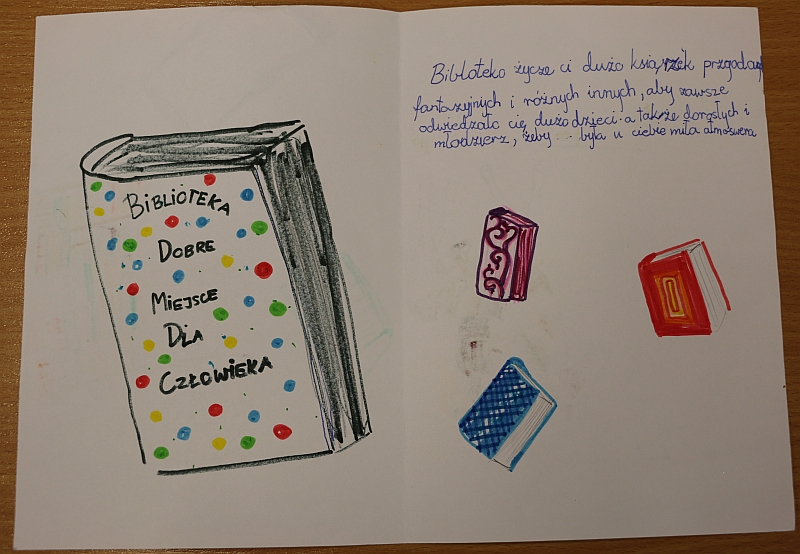 BIBLIOTEKA
DOBRE
MIEJSCE
DLA
CZŁOWIEKA
Bibloteko życzę ci dużo książek przygodo
fantazyjnych i różnych innych, aby zawsze
odwiedzało cię dużo dzieci a także dorosłych i
młodzierz, żeby była u ciebie miła atmoswera